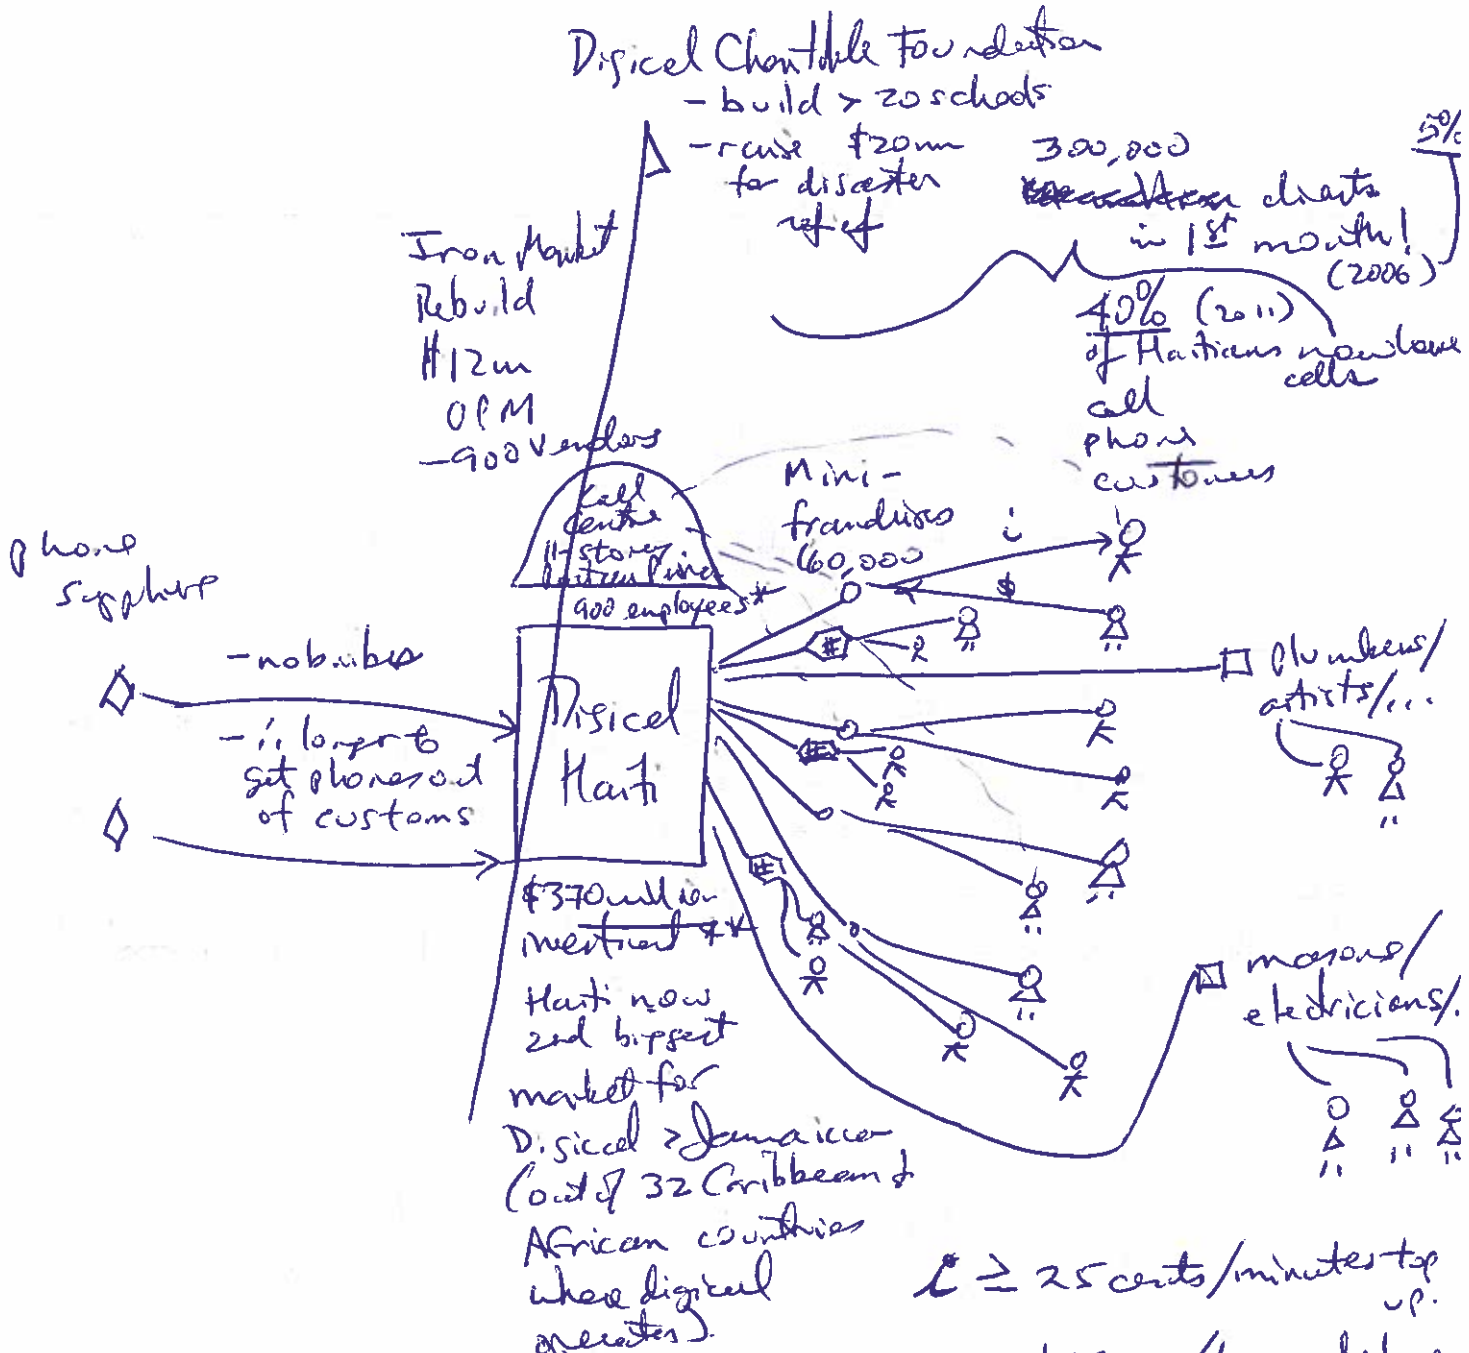 Digical Charitable Foundation
- build > 20 schools
- raise $20m
for disaster
relief
300,000
clients
in 1st month!
(2006)
5%
40% (2011)
of Haitians now have
cells
cell
phone
customers
Iron Market
Rebuild
$12m
OPM
- 900 Vendors
Call
Centre
11-storey
900 employees*
Mini-
franchises
60,000
i
$
phone
suppliers
- no bribes
- ∴ longer to
get phones out
of customs
Digicel
Haiti
plumbers/
artists/...
$370 million
investment **
Haiti now
2nd biggest
market for
Digicel > Jamaica
(out of 32 Caribbean &
African countries
where digicel
operates).
masons/
electricians/.
i ≥ 25 cents/minutes top
up.